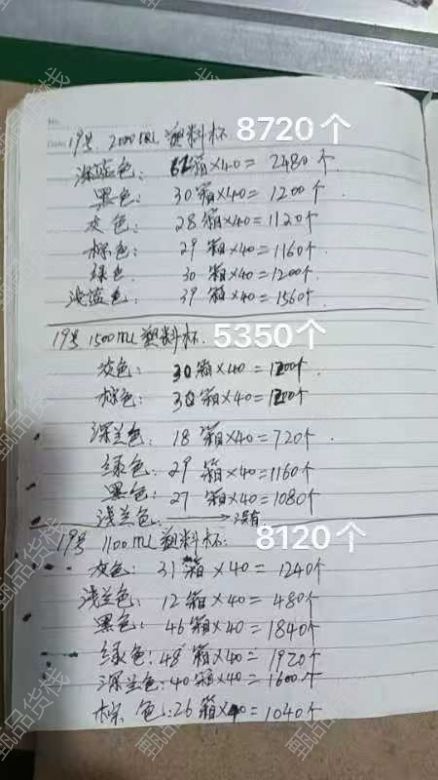 19号 2000ML 塑料杯 8720个
深蓝色: 62箱×40= 2480个
黑色: 30箱×40= 1200个
灰色: 28箱×40=1120个
棕色: 29箱×40=1160个
绿色 30箱×40=1200个
浅蓝色: 39箱×40=1560个
19号 1500ML 塑料杯. 5350个
灰色: 30箱×40=1200个
棕色: 30箱×40=1200个
深兰色: 18箱×40=720个
绿色: 29箱×40=1160个
黑色: 27箱×40=1080个
浅兰色: → 没有
19号 1100ML 塑料杯: 8120个
灰色: 31箱×40= 1240个
浅兰色: 12箱×40= 480个
黑色: 46箱×40= 1840个
绿色: 48箱×40= 1920个
深兰色: 40箱×40= 1600个
棕色: 26箱×40= 1040个
甄品货栈